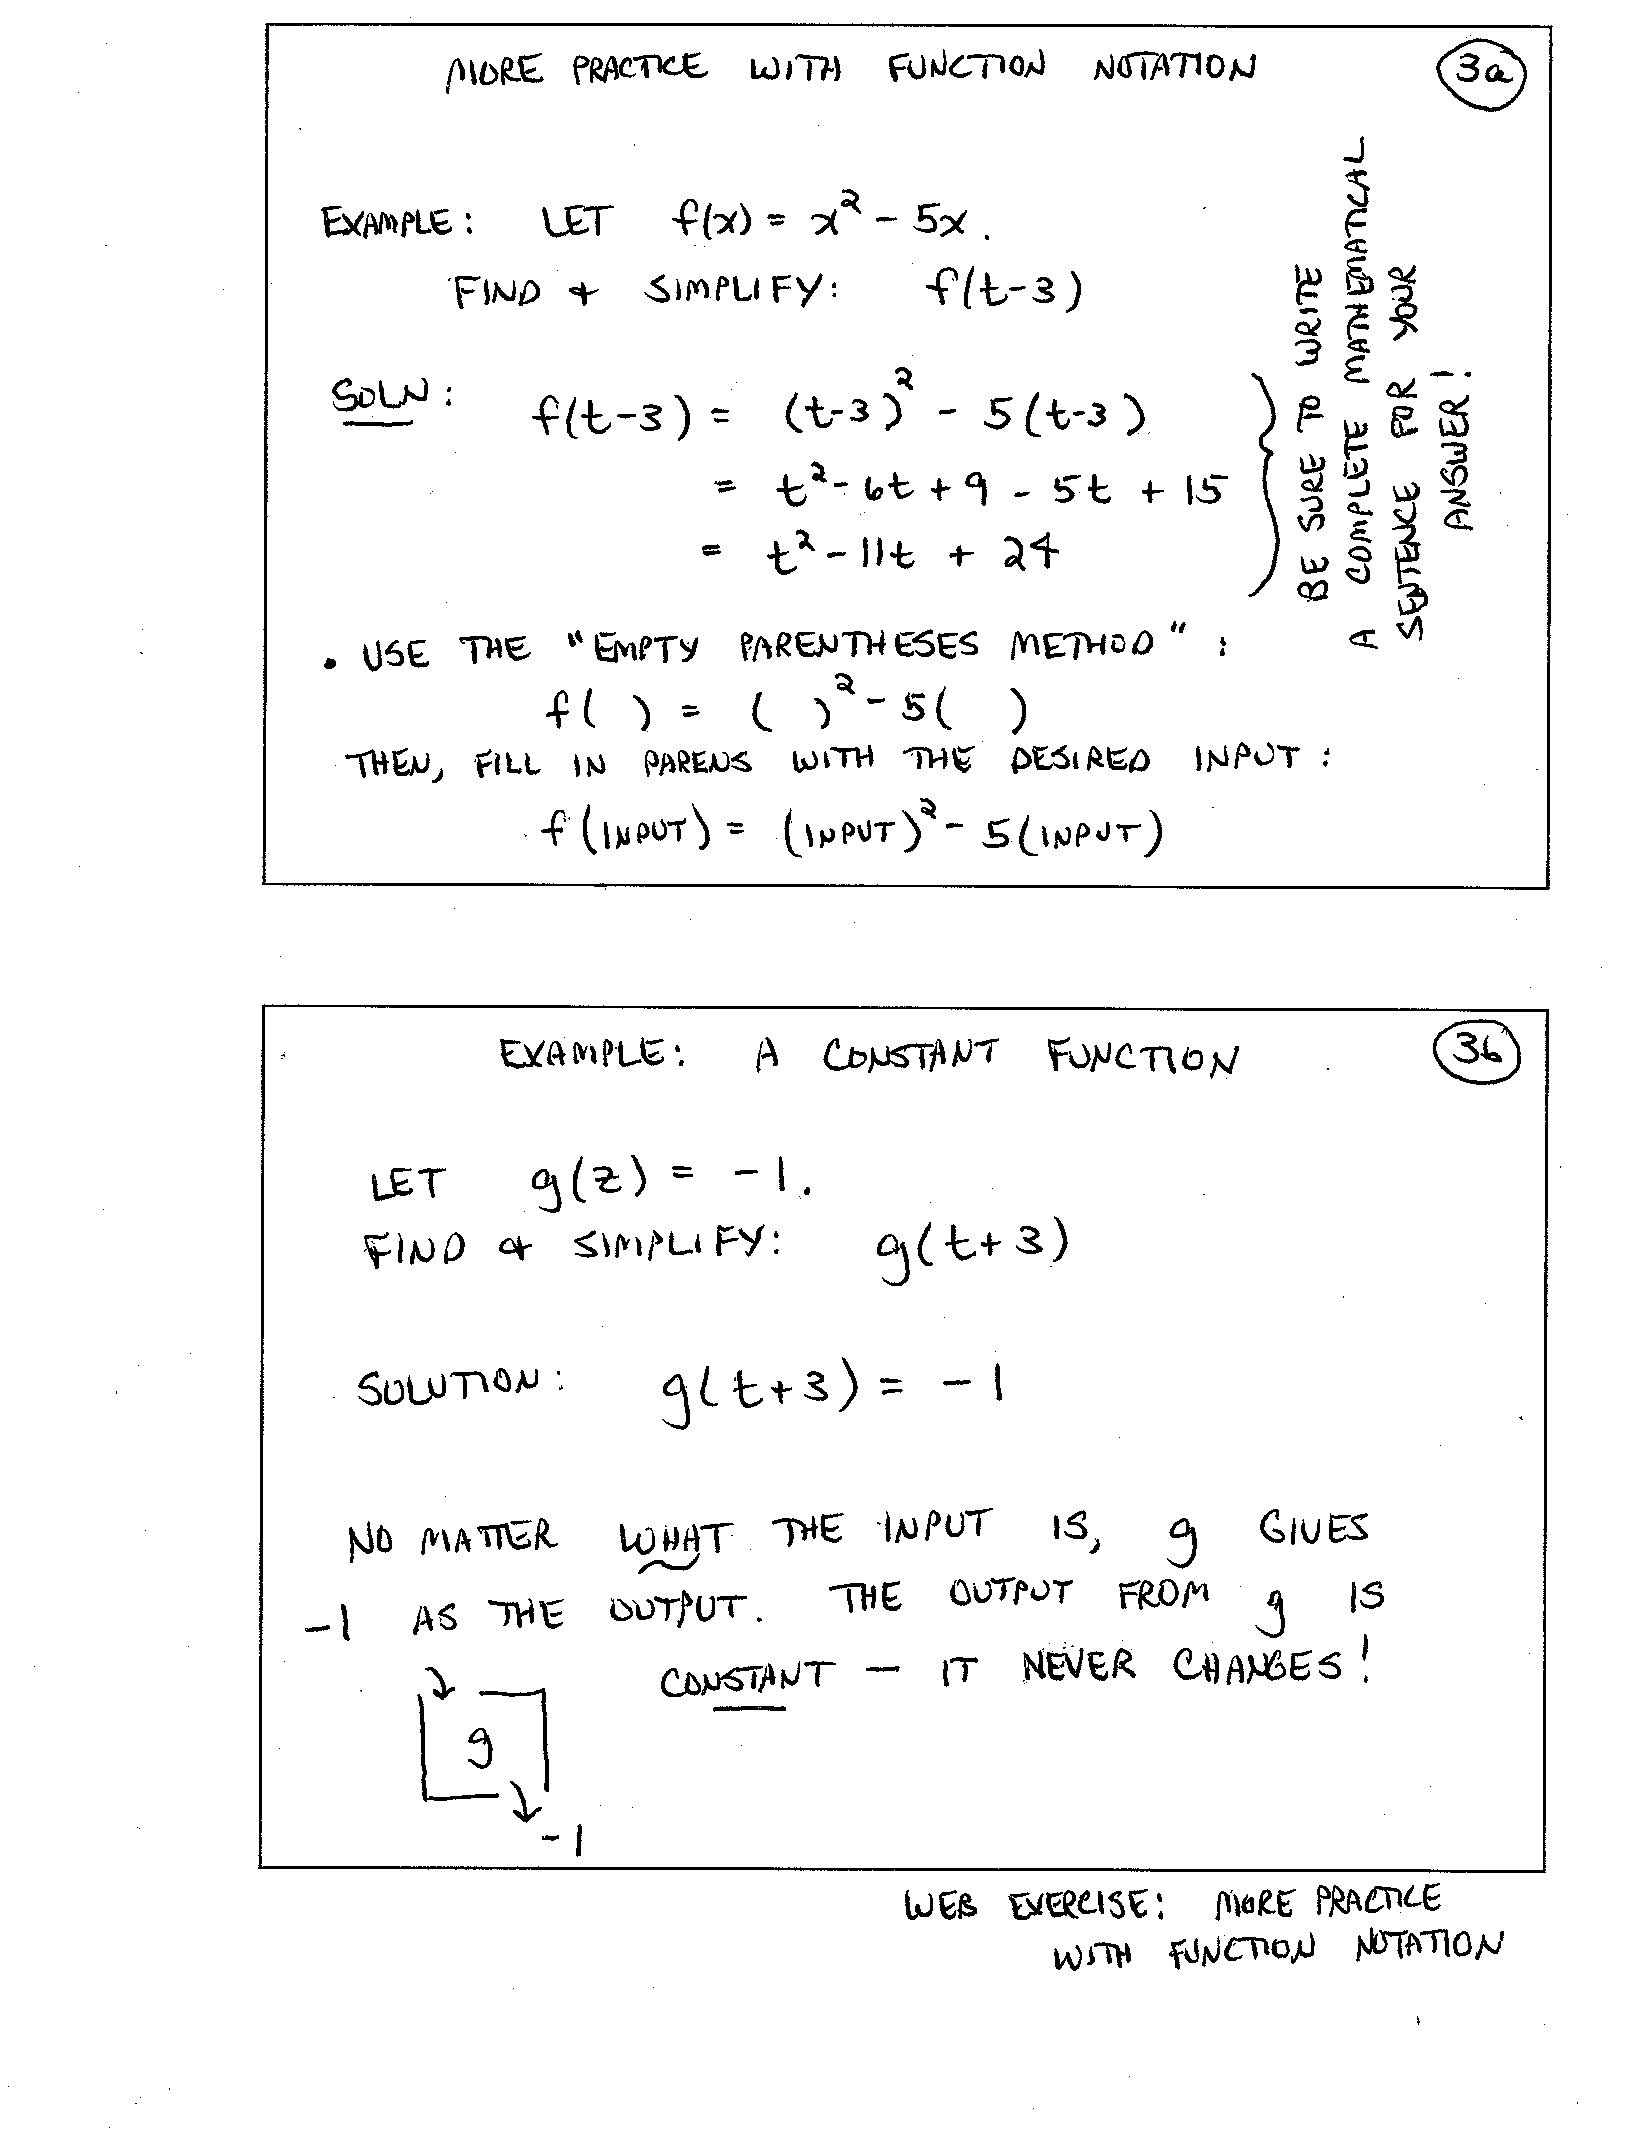 MORE PRACTICE WITH FUNCTION NOTATION
3a
EXAMPLE: LET f(x) = x² - 5x.
FIND & SIMPLIFY: f(t-3)
SOLN: f(t-3) = (t-3)² - 5(t-3)
= t² - 6t + 9 - 5t + 15
= t² - 11t + 24
BE SURE TO WRITE
A COMPLETE MATHEMATICAL
SENTENCE FOR YOUR
ANSWER!
• USE THE "EMPTY PARENTHESES METHOD":
f( ) = ( )² - 5( )
THEN, FILL IN PARENS WITH THE DESIRED INPUT:
f(INPUT) = (INPUT)² - 5(INPUT)
EXAMPLE: A CONSTANT FUNCTION
3b
LET g(z) = -1.
FIND & SIMPLIFY: g(t+3)
SOLUTION: g(t+3) = -1
NO MATTER WHAT THE INPUT IS, g GIVES
-1 AS THE OUTPUT. THE OUTPUT FROM g IS
CONSTANT — IT NEVER CHANGES!
g
-1
WEB EXERCISE: MORE PRACTICE
WITH FUNCTION NOTATION